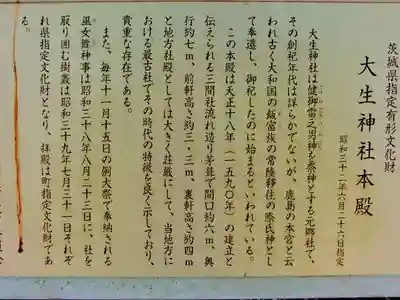 茨城県指定有形文化財
大生神社本殿
昭和三十二年六月二十六日指定
大生神社は健御雷之男神を祭神とする元郷社で、
その創祀年代は詳らかでないが、鹿島の本宮と云
われ古く大和国の飯富族の常陸移住の際氏神とし
て奉遷し、御祀したのに始まるといわれている。
この本殿は天正十八年(一五九〇年)の建立と
伝えられる三間社流れ造り茅葺で間口約六m、奥
行約七m、前軒高さ約三・三m、裏軒高さ約四m
と地方社殿としては大きく荘厳にして、当地方に
おける最古社でその時代の特徴を良く示しており、
貴重な存在である。
また、毎年十一月十五日の例大祭で奉納される
巫女舞神事は昭和三十八年八月二十三日に、社を
取り囲む樹叢は昭和三十九年七月三十一日それぞ
れ県指定文化財となり、拝殿は町指定文化財であ
る。